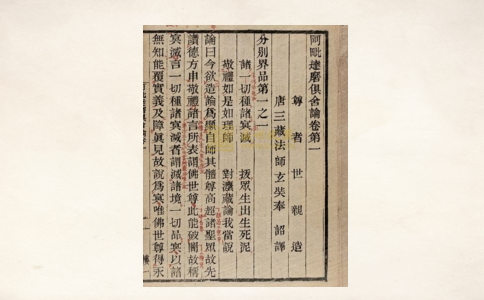 阿毗達磨俱舍論卷第一
尊者世親造
唐三藏法師玄奘奉 詔譯
分別界品第一之一
諸一切種諸冥滅 拔眾生出生死泥
敬禮如是如理師 對法藏論我當說
論曰今欲造論爲顯自師其體尊高超諸聖眾故先
讚德方申敬禮諸言所表謂佛世尊此能破闇故稱
冥滅言一切種諸冥滅者謂滅諸境一切品冥以諸
無知能覆實義及障眞見故說爲冥唯佛世尊得永